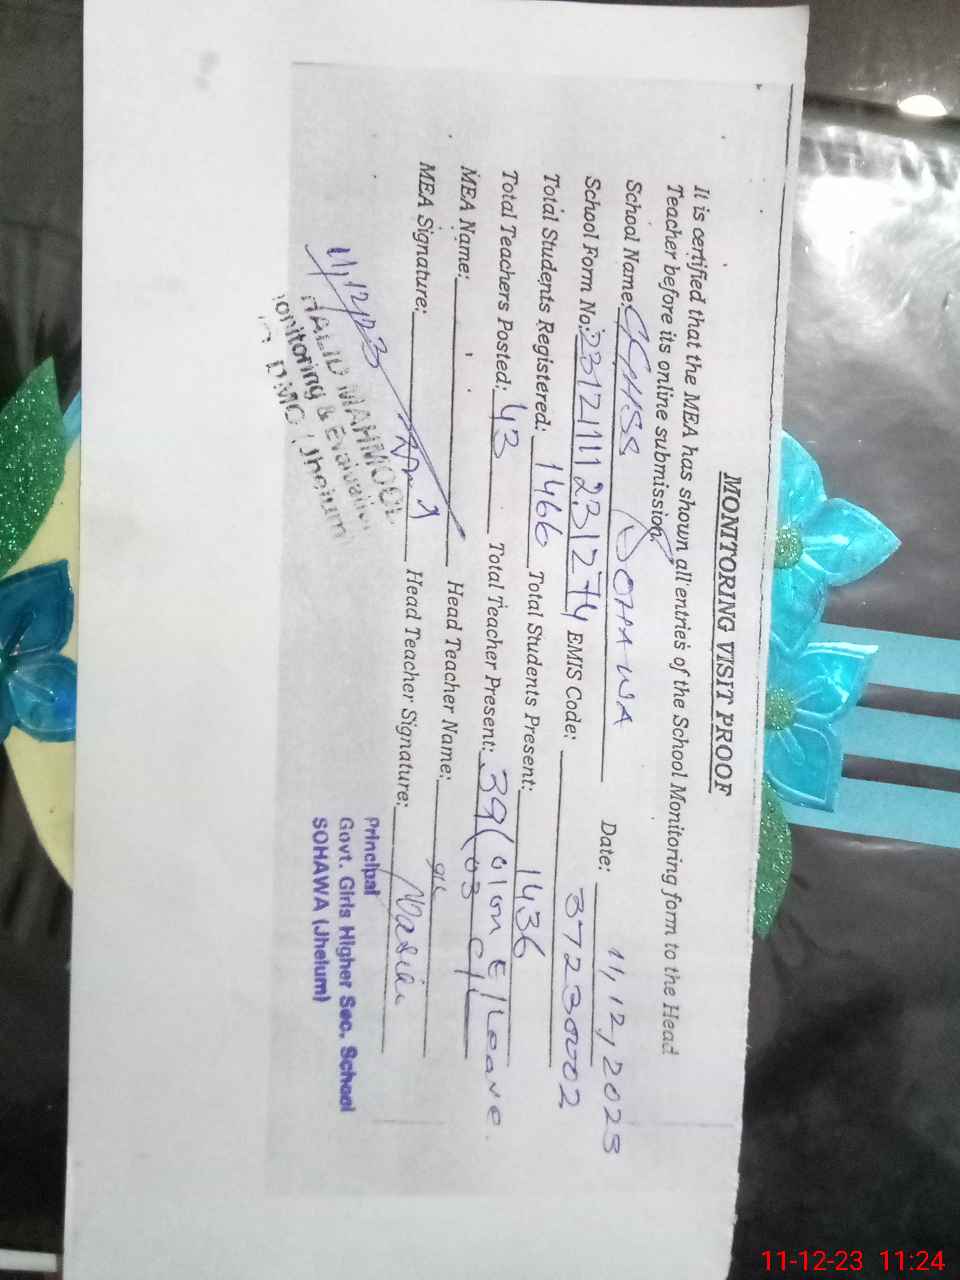 MONITORING VISIT PROOF
It is certified that the MEA has shown all entries of the School Monitoring form to the Head
Teacher before its online submission.
School Name: GGHSS SOHAWA Date: 11,12,2023
School Form No: 2312111123127 4 EMIS Code: 37230002
Total Students Registered: 1466 Total Students Present: 1436
Total Teachers Posted: 43 Total Teacher Present: 39 (01 on E/Leave
03 C/L
MEA Name: Head Teacher Name:
MEA Signature: Head Teacher Signature:
11/12/23
HALID MAHMOOD
onitoring & Evaluation
DMO (Jhelum)
Principal
Govt. Girls Higher Sec. School
SOHAWA (Jhelum)
11-12-23 11:24